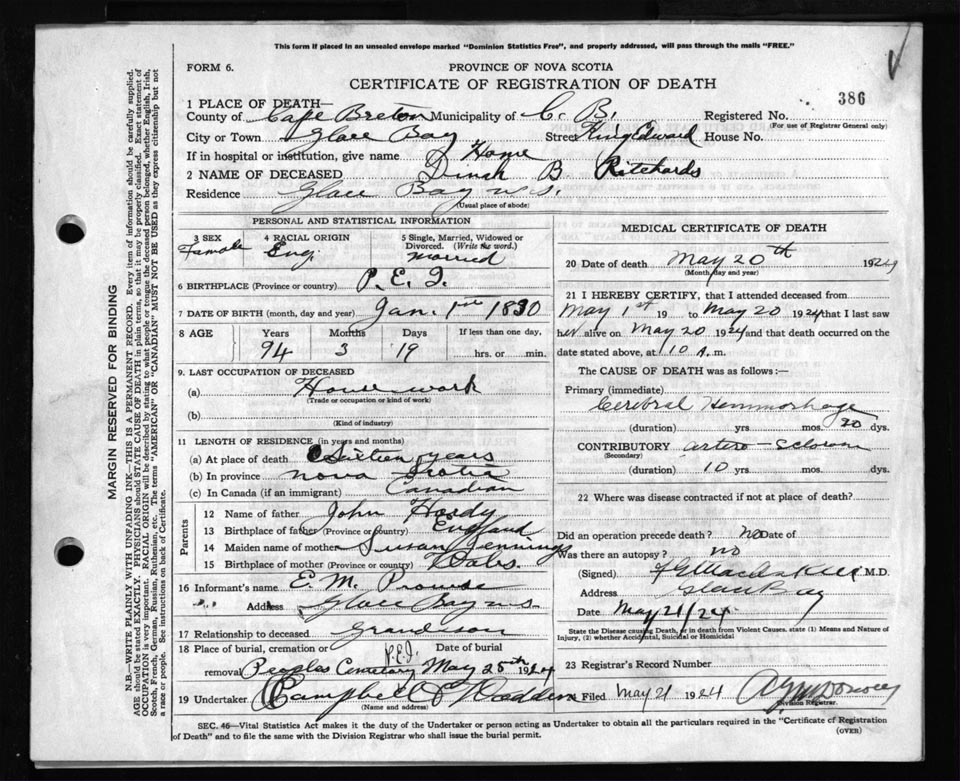 This form if placed in an unsealed envelope marked "Dominion Statistics Free", and properly addressed, will pass through the mails "FREE."
FORM 6.
PROVINCE OF NOVA SCOTIA
CERTIFICATE OF REGISTRATION OF DEATH
386
1 PLACE OF DEATH—
County of Cape Breton Municipality of C. B. Registered No.
(For use of Registrar General only)
City or Town Glace Bay Street King Edward House No.
If in hospital or institution, give name Home
2 NAME OF DECEASED Dinah B. Ritchards
Residence Glace Bay N.S.
(Usual place of abode)
PERSONAL AND STATISTICAL INFORMATION
3 SEX Female
4 RACIAL ORIGIN Eng.
5 Single, Married, Widowed or Divorced. (Write the word.) Married
6 BIRTHPLACE (Province or country) P.E.I.
7 DATE OF BIRTH (month, day and year) Jan. 1 1830
8 AGE Years Months Days If less than one day,
94 3 19 hrs. or min.
9. LAST OCCUPATION OF DECEASED
(a) House work
(Trade or occupation or kind of work)
(b)
(Kind of industry)
11 LENGTH OF RESIDENCE (in years and months)
(a) At place of death Sixteen years
(b) In province Nova Scotia
(c) In Canada (if an immigrant) Canadian
Parents
12 Name of father John Hardy
13 Birthplace of father (Province or country) England
14 Maiden name of mother Susan Jennings
15 Birthplace of mother (Province or country) Wales.
16 Informant's name E. M. Prowse
" Address Glace Bay N.S.
17 Relationship to deceased Grand son
18 Place of burial, cremation or removal Peoples Cemetery P.E.I. Date of burial May 25th 1924
19 Undertaker Campbell
(Name and address)
MEDICAL CERTIFICATE OF DEATH
20 Date of death May 20th 1924
(Month day and year)
21 I HEREBY CERTIFY, that I attended deceased from
May 1st 19 to May 20 1924 that I last saw
her alive on May 20 1924 and that death occurred on
date stated above, at 10 A. m.
The CAUSE OF DEATH was as follows:—
Primary (immediate)
Cerebral Hemmorhage
(duration) yrs. mos. 20 dys.
CONTRIBUTORY
(Secondary)
(duration) 10 yrs. mos. dys.
22 Where was disease contracted if not at place of death?
Did an operation precede death? No Date of
Was there an autopsy? no
(Signed) M.D.
Address Glace Bay
Date May 21/24
State the Disease causing Death, or in death from Violent Causes, state (1) Means and Nature of
Injury, (2) whether Accidental, Suicidal or Homicidal
23 Registrar's Record Number
Filed May 21 1924
Division Registrar.
SEC. 46—Vital Statistics Act makes it the duty of the Undertaker or person acting as Undertaker to obtain all the particulars required in the "Certificate of Registration
of Death" and to file the same with the Division Registrar who shall issue the burial permit.
(OVER)
MARGIN RESERVED FOR BINDING
N.B.—WRITE PLAINLY WITH UNFADING INK—THIS IS A PERMANENT RECORD. Every item of information should be carefully supplied.
AGE should be stated EXACTLY. PHYSICIANS should state CAUSE OF DEATH in plain terms, so that it may be properly classified. Exact statement of
OCCUPATION is very important. RACIAL ORIGIN will be described by stating to what people or tongue the deceased person belonged, whether English, Irish,
Scotch, French, German, Russian, Ruthenian, etc. The terms "AMERICAN" OR "CANADIAN" MUST NOT BE USED as they express citizenship but not
a race or people. See instructions on back of Certificate.